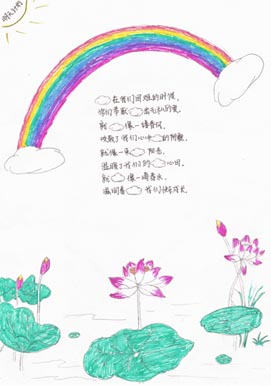 在我们困难的时候,
你们奉献出无私的爱,
就像一缕春风,
吹散了我们心中的阴霾,
就像一 阳光,
温暖了我们的心田,
就像一滴春水,
滋润着我们快乐成长